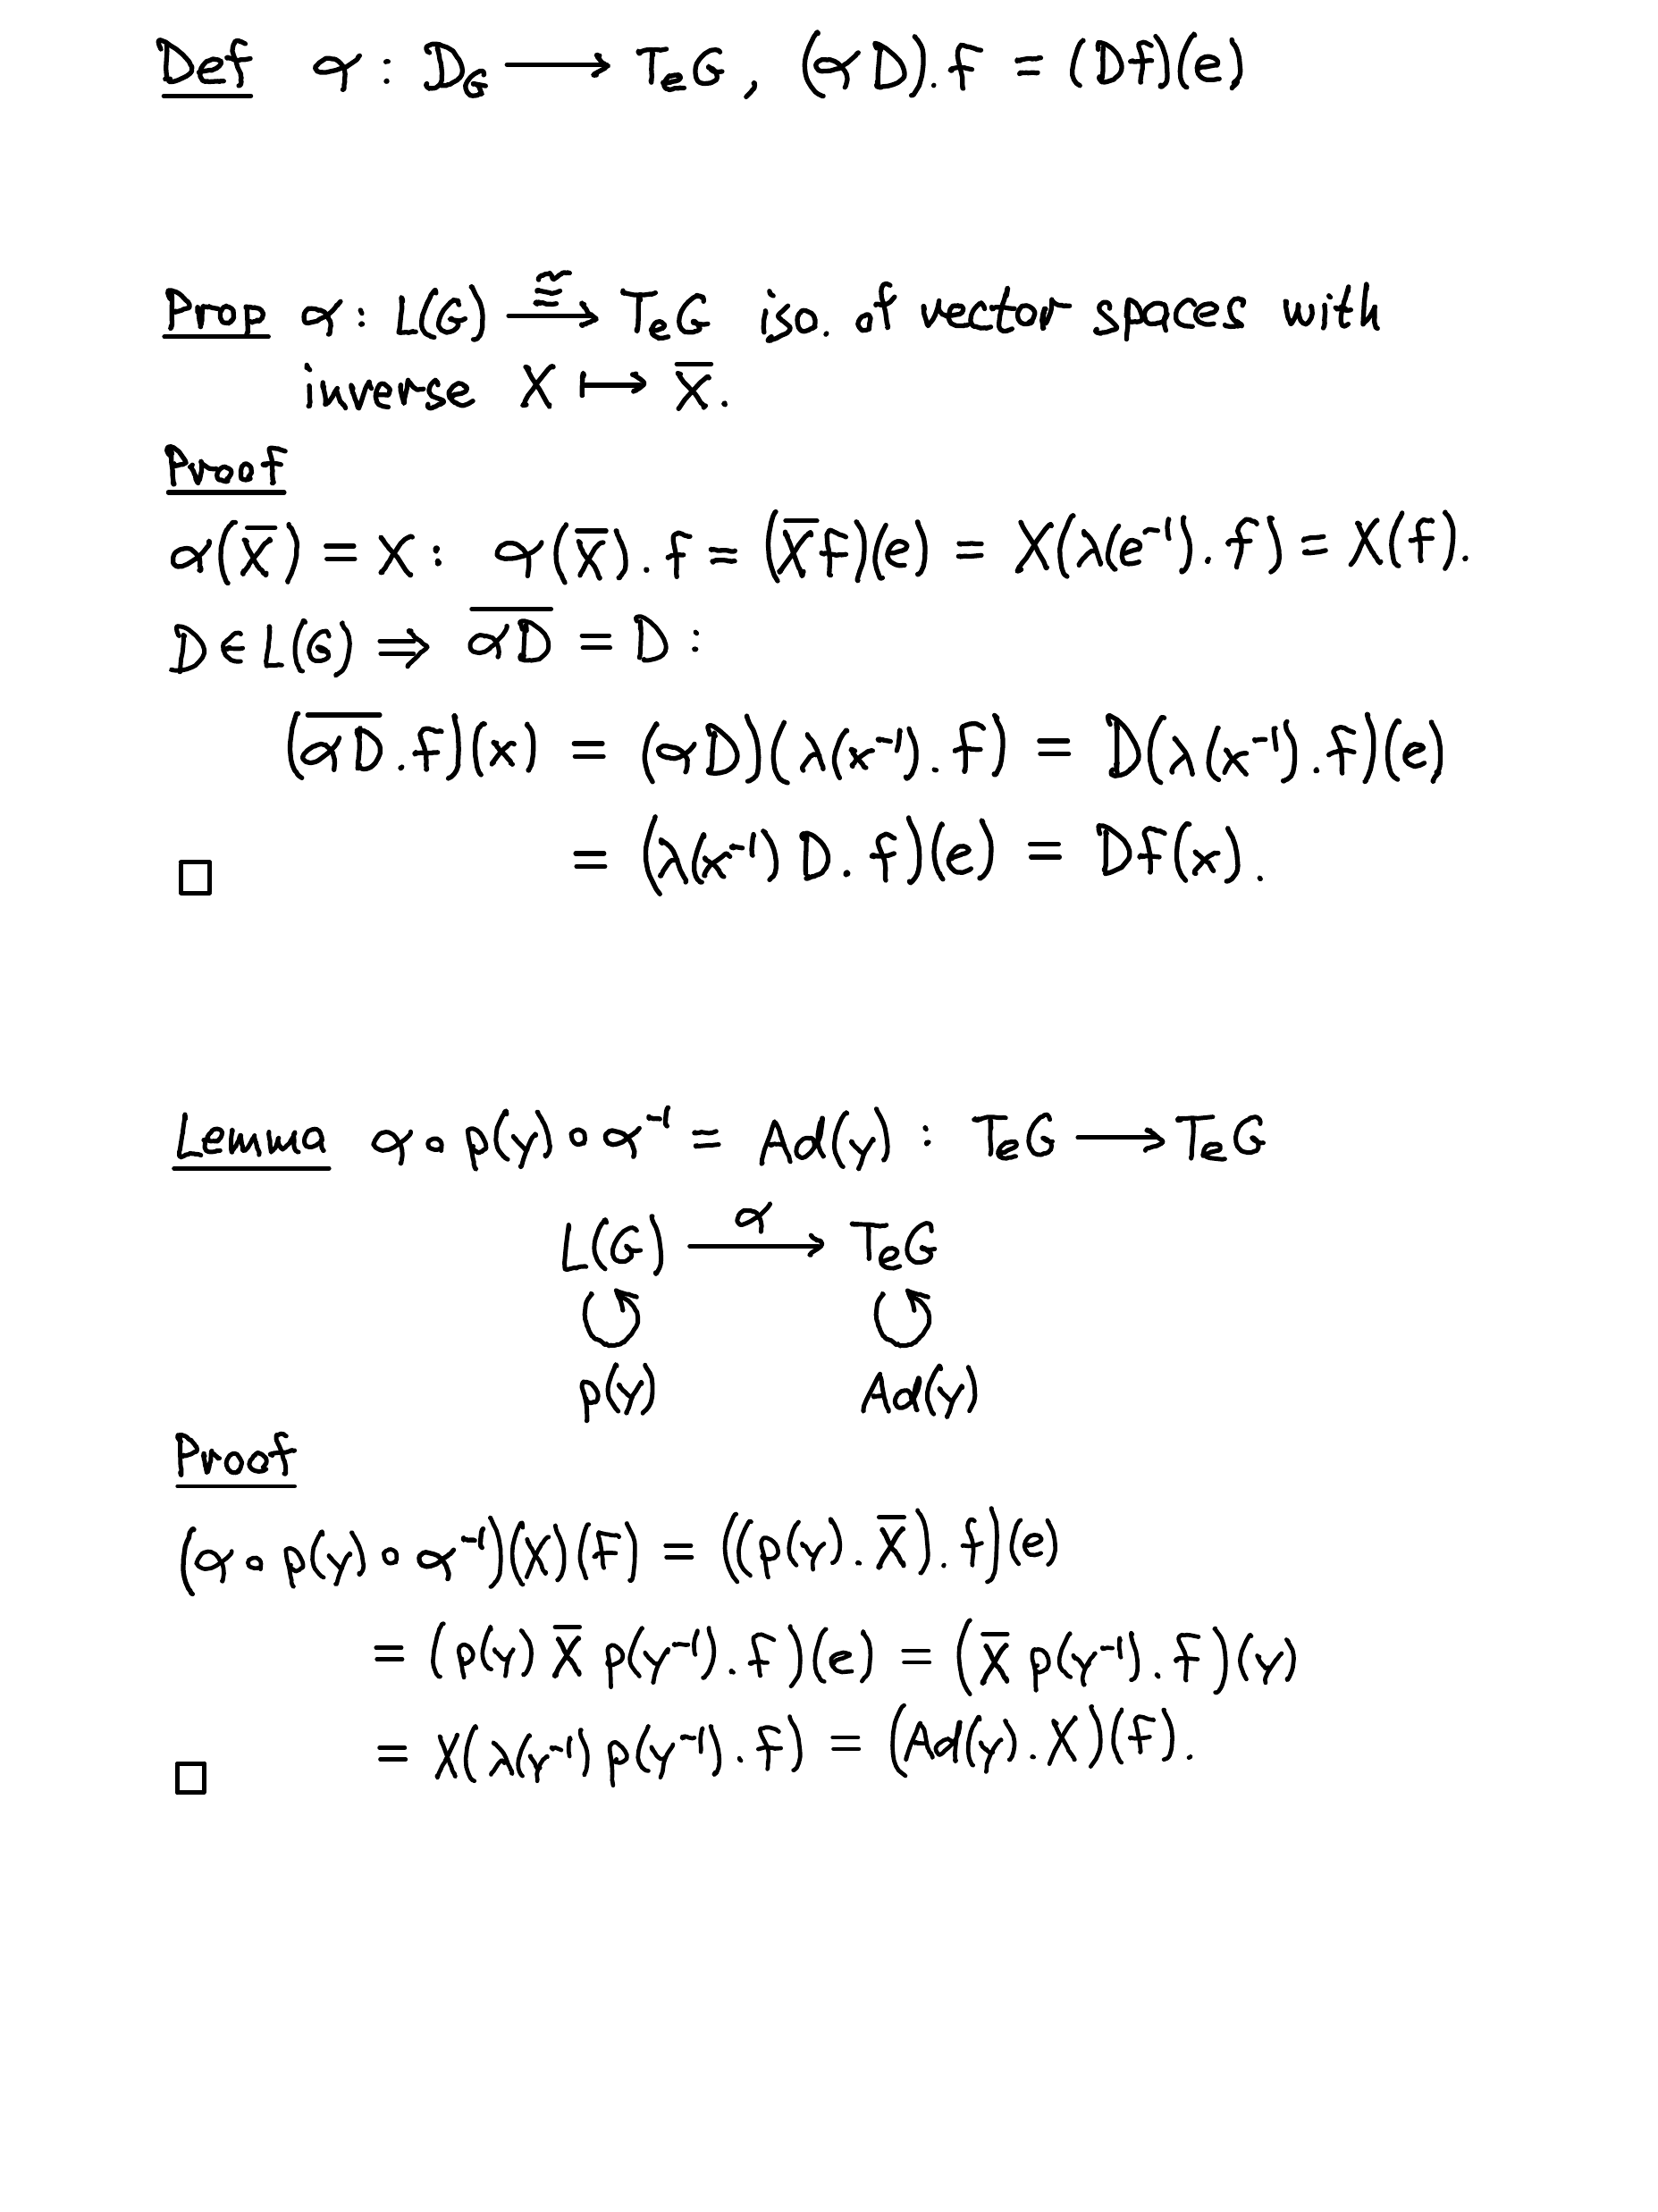 Def α : D_G ⟶ TₑG , (αD).f = (Df)(e)
Prop α : L(G) ≅⟶ TₑG iso. of vector spaces with
inverse X ↦ X̅.
Proof
α(X̅) = X : α(X̅).f = (X̅f)(e) = X(λ(e⁻¹).f) = X(f).
D ∈ L(G) ⇒ \overline{αD} = D :
(\overline{αD}.f)(x) = (αD)(λ(x⁻¹).f) = D(λ(x⁻¹).f)(e)
= (λ(x⁻¹) D.f)(e) = Df(x).
□
Lemma α∘ρ(y)∘α⁻¹ = Ad(y) : TₑG ⟶ TₑG
L(G) ⟶ TₑG
α
↺ ↺
ρ(y) Ad(y)
Proof
(α∘ρ(y)∘α⁻¹)(X)(f) = ((ρ(y).X̅).f)(e)
= (ρ(y) X̅ ρ(y⁻¹).f)(e) = (X̅ ρ(y⁻¹).f)(y)
= X(λ(y⁻¹) ρ(y⁻¹).f) = (Ad(y).X)(f).
□